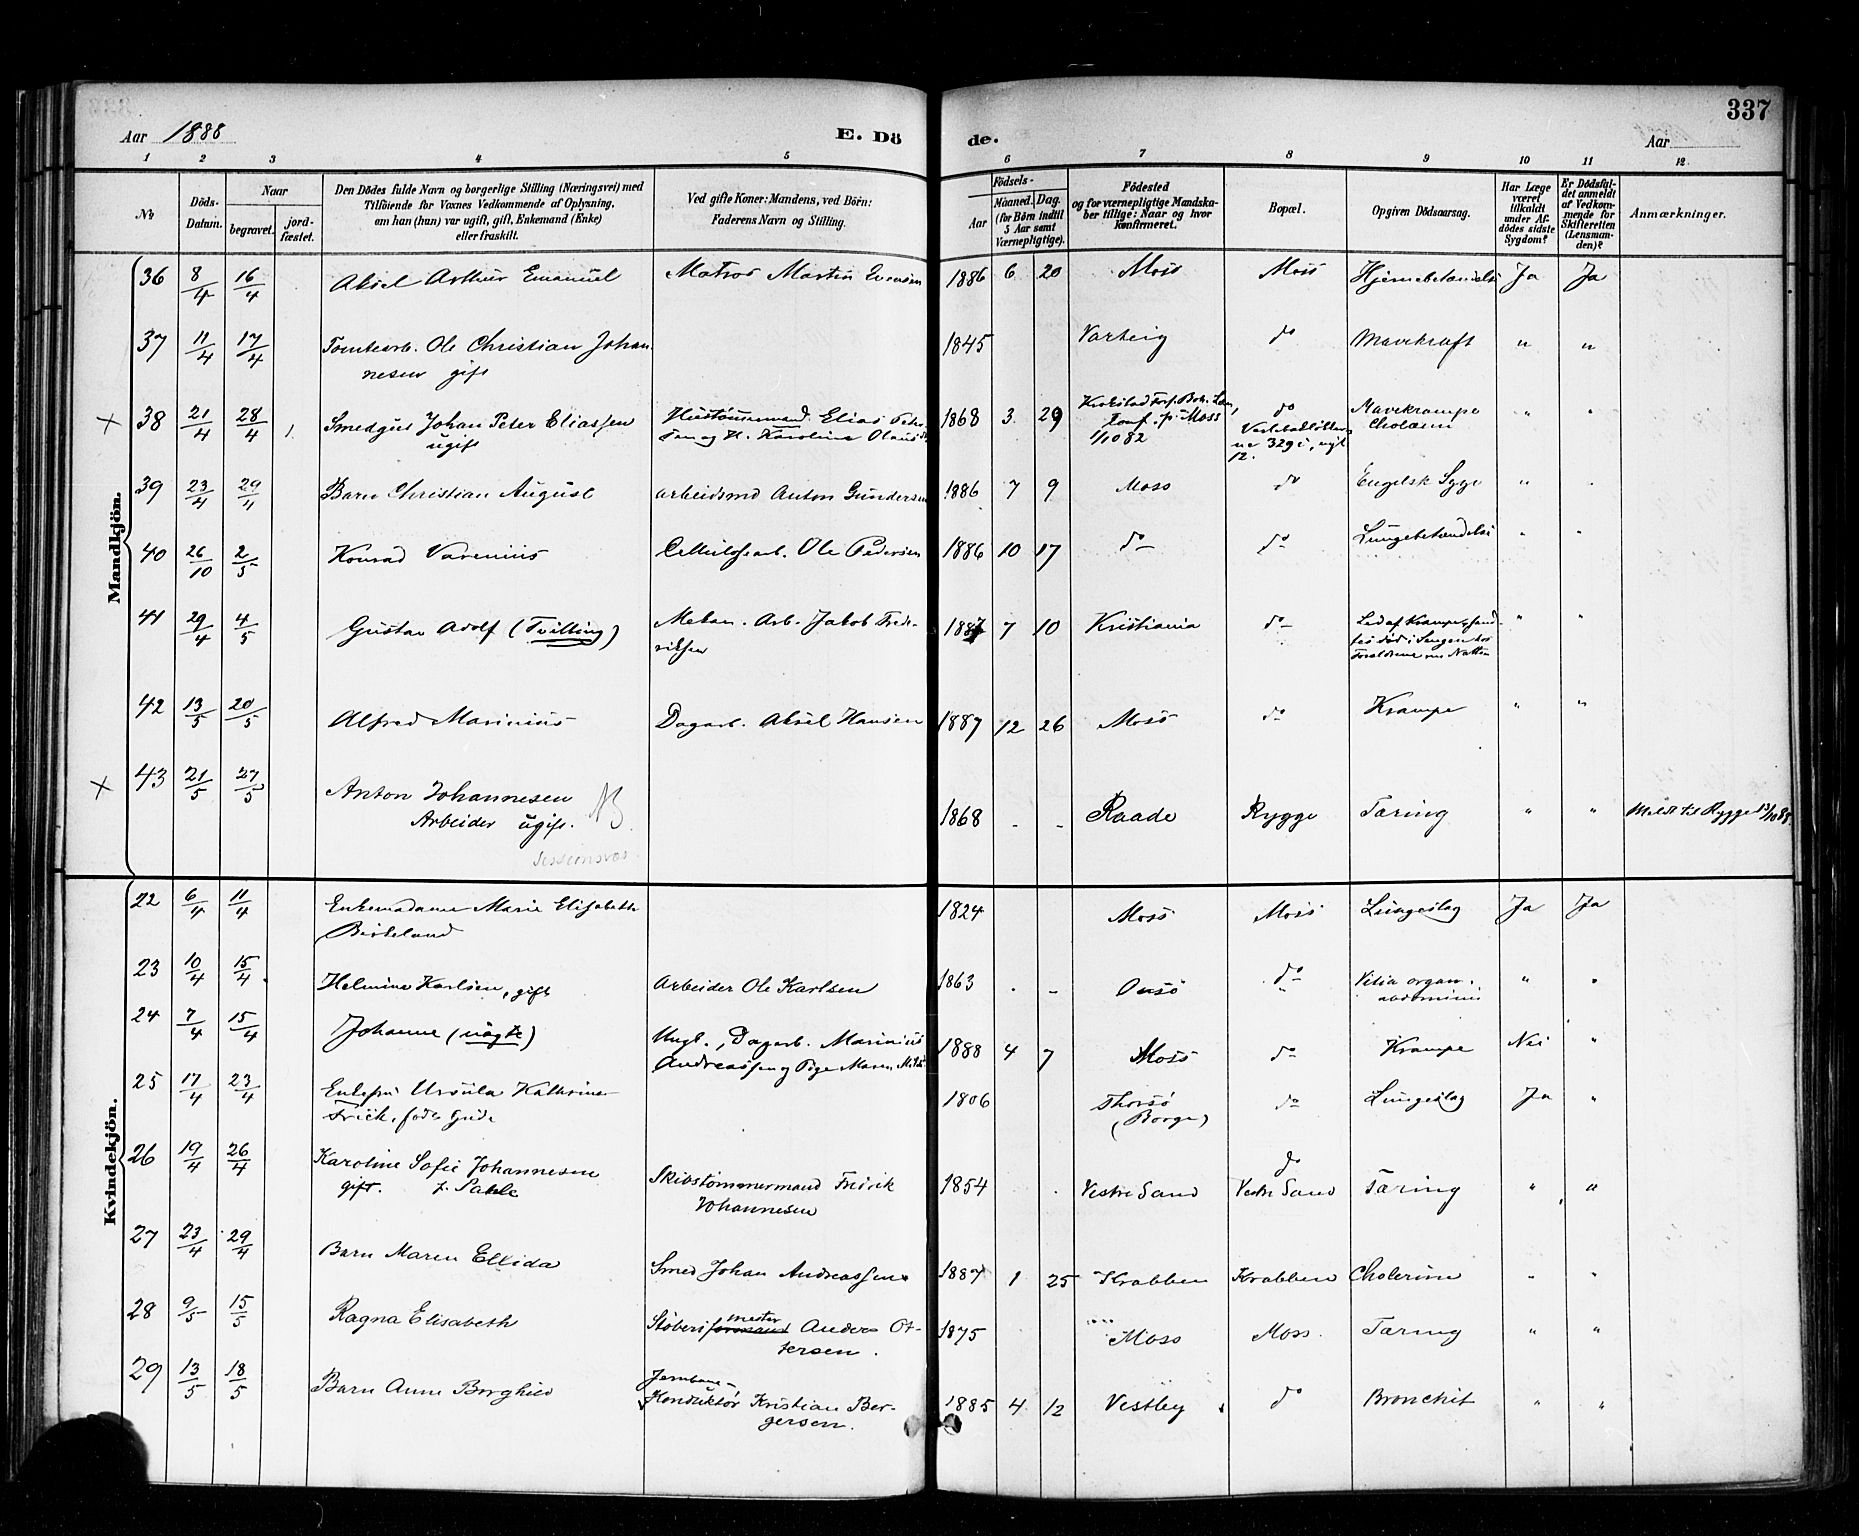 337
Aar 1888 E. Dö de. Aar
1 2 3 4 5 6 7 8 9 10 11 12.
No
Döds-Datum.
Naar begravet. jordfæstet.
Den Dödes fulde Navn og borgerlige Stilling (Næringsvei) med
Tilföiende for Voxnes Vedkommende af Oplysning,
om han (hun) var ugift, gift, Enkemand (Enke)
eller fraskilt.
Ved gifte Koner: Mandens, ved Börn:
Faderens Navn og Stilling.
Födsels-
Aar
Maaned. Dag.
(for Börn indtil
5 Aar samt
Værnepligtige).
Födested
og for værnepligtige Mandska-
ber tillige: Naar og hvor
konfirmeret.
Bopæl.
Opgiven Dödsaarsag.
Har Læge
været
tilkaldt
under Af-
dödes sidste
Sygdom?
Er Dödsfal-
det anmeldt
af Vedkom-
mende for
Skifteretten
(Lensman-
den)?
Anmærkninger.
Mandkjön.
36 8/4 16/4 Aksel Arthur Emanuel Matros Martin Evensen 1886 6 20 Moss Moss Hjernebetændelse Ja Ja
37 11/4 17/4 Tomtearb. Ole Christian Johan- 1845 Varteig do Mavekræft " "
nesen gift
38 21/4 28/4 Smedgut Johan Peter Eliassen Hustömmermand Elias Peter- 1868 3 29 Krokstad do Mavekrampe " "
ugift sen og H. Karoline Konf. p. Moss Cholerin
1/10 82 329
12.
39 23/4 29/4 Barn Christian August Arbeidsmd Anton Gundersen 1886 7 9 Moss do Engelsk Syge "
40 26/10 2/5 Konrad Varenius Cellulosearb. Ole Pedersen 1886 10 17 do do Lungebetændelse " "
41 29/4 4/5 Gustav Adolf (Tvilling) Mekan. Arb. Jakob Fred- 1887 7 10 Kristiania do Led af Krampe, fand- " "
riksen tes död i Sengen hos
Forældrene om Natten
42 13/5 20/5 Alfred Marinius Dagarb. Aksel Hansen 1887 12 26 Moss do Krampe " "
43 21/5 27/5 Anton Johannesen NB 1868 - - Raade Rygge Tæring " " Meldt til Rygge 13/10 88.
Arbeider ugift.
Kvindekjön.
22 6/4 11/4 Enkemadame Marie Elisabeth 1824 Moss Moss Lungeslag Ja Ja
Birkeland
23 10/4 15/4 Helmine Karlsen, gift Arbeider Ole Karlsen 1863 - - Onsö do Vitia organ. " "
abdominis
24 7/4 15/4 Johanne (uægte) Ungk., Dagarb. Marinius 1888 4 7 Moss do Krampe Nei "
Andreassen og Pige Maren
25 17/4 23/4 Enkefru Ursula Kathrine 1806 Thorsö do Lungeslag Ja "
Frick, född Gude (Borge)
26 19/4 26/4 Karoline Sofie Johannesen Skibstömmermand Fredrik 1854 Vestre Sand do Vestre Sand Tæring " "
gift. Johannesen
27 23/4 29/4 Barn Maren Ellida Smed Johan Andreassen 1887 1 25 Krabben Krabben Cholerine " "
28 9/5 15/5 Ragna Elisabeth Stöberimester Anders Ot- 1875 Moss Moss. Tæring " "
tersen.
29 13/5 18/5 Barn Anne Borghild Jernbane-
Konduktör Kristian Ber- 1885 4 12 Vestby do Bronchit " "
gersen.